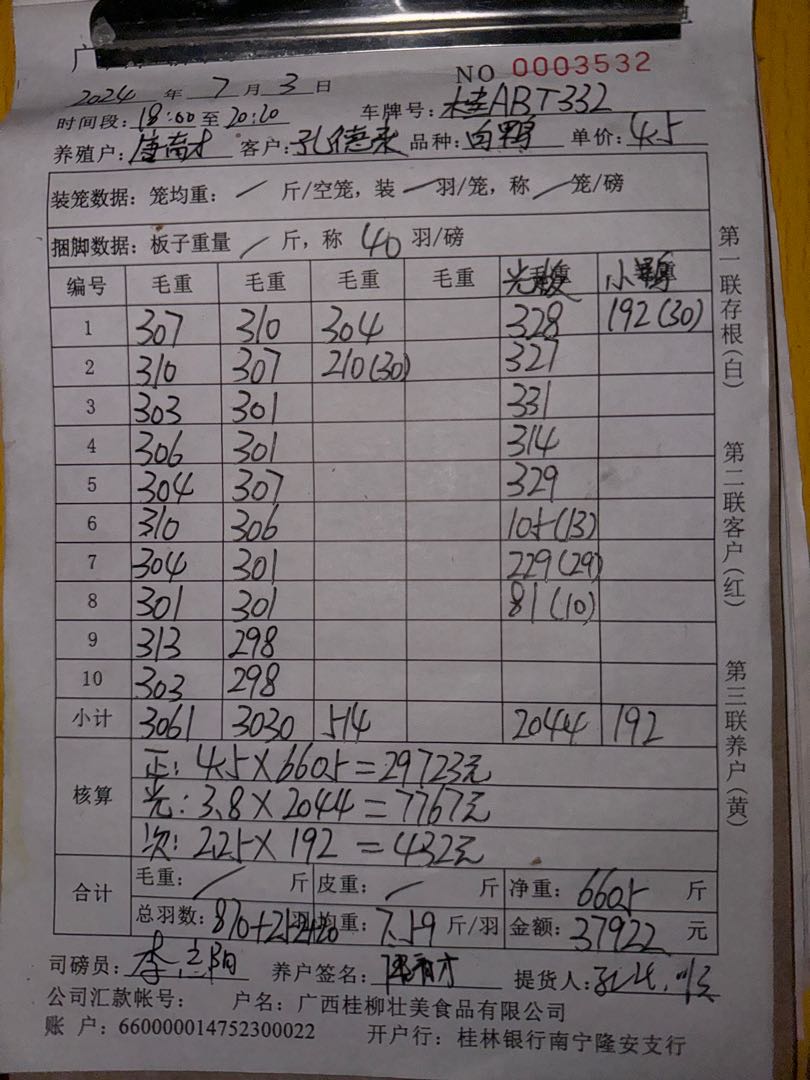 广
NO 0003532
2024 年 7 月 3 日
时间段: 18:00 至 20:20 车牌号: 桂ABT332
养殖户: 唐高才 客户: 孔德 品种: 白鸭 单价: 4.5
装笼数据: 笼均重: / 斤/空笼, 装 / 羽/笼, 称 / 笼/磅
捆脚数据: 板子重量 / 斤, 称 40 羽/磅
编号 毛重 毛重 毛重 毛重 光 小
1 307 310 304 328 192(30)
2 310 307 210(30) 327
3 303 301 331
4 306 301 314
5 304 307 329
6 310 306 105(13)
7 304 301 229(29)
8 301 301 81(10)
9 313 298
10 303 298
小计 3061 3030 514 2044 192
核算 正: 4.5×6605=29723元
光: 3.8×2044=7767元
次: 2.25×192=432元
合计 毛重: / 斤 皮重: / 斤 净重: 6605 斤
总羽数: 870+252+30 均重: 7.59 斤/羽 金额: 37922 元
司磅员: 李 阳 养户签名: 才 提货人:
公司汇款帐号: 户名: 广西桂柳壮美食品有限公司
账 户: 660000014752300022 开户行: 桂林银行南宁隆安支行
第一联存根(白)
第二联客户(红)
第三联养户(黄)